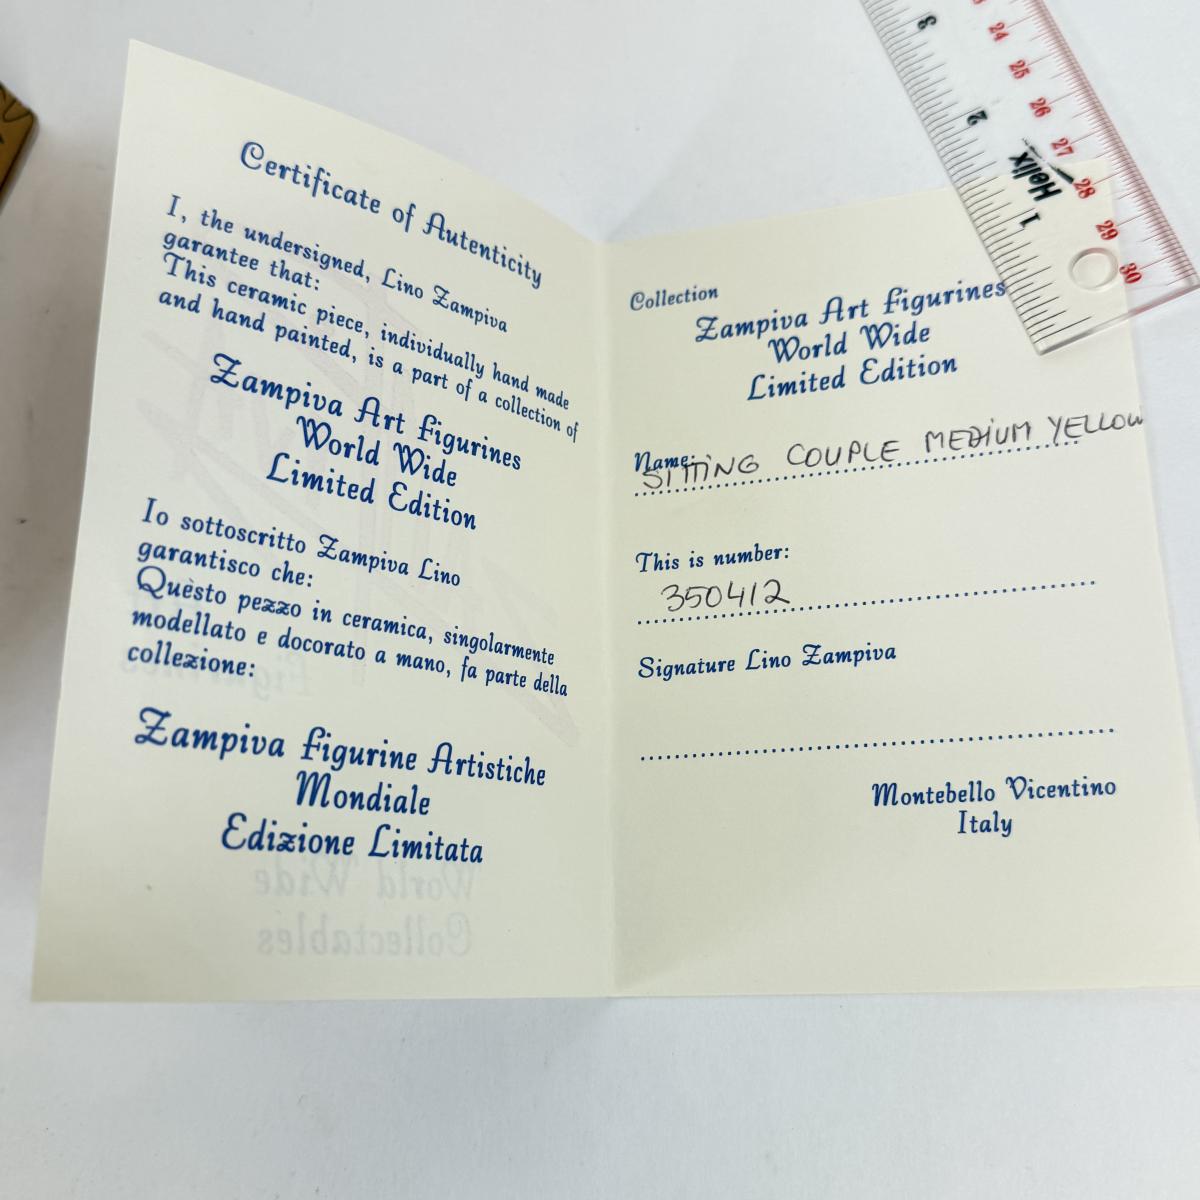 Certificate of Autenticity
I, the undersigned, Lino Zampiva
garantee that:
This ceramic piece, individually hand made
and hand painted, is a part of a collection of
Zampiva Art Figurines
World Wide
Limited Edition
Io sottoscritto Zampiva Lino
garantisco che:
Questo pezzo in ceramica, singolarmente
modellato e docorato a mano, fa parte della
collezione:
Zampiva Figurine Artistiche
Mondiale
Edizione Limitata
World Wide
Collectables
Collection
Zampiva Art Figurines
World Wide
Limited Edition
Name: SITTING COUPLE MEDIUM YELLOW
This is number:
350412
Signature Lino Zampiva
Montebello Vicentino
Italy
3 2 1
Helix
24 25 26 27 28 29 30